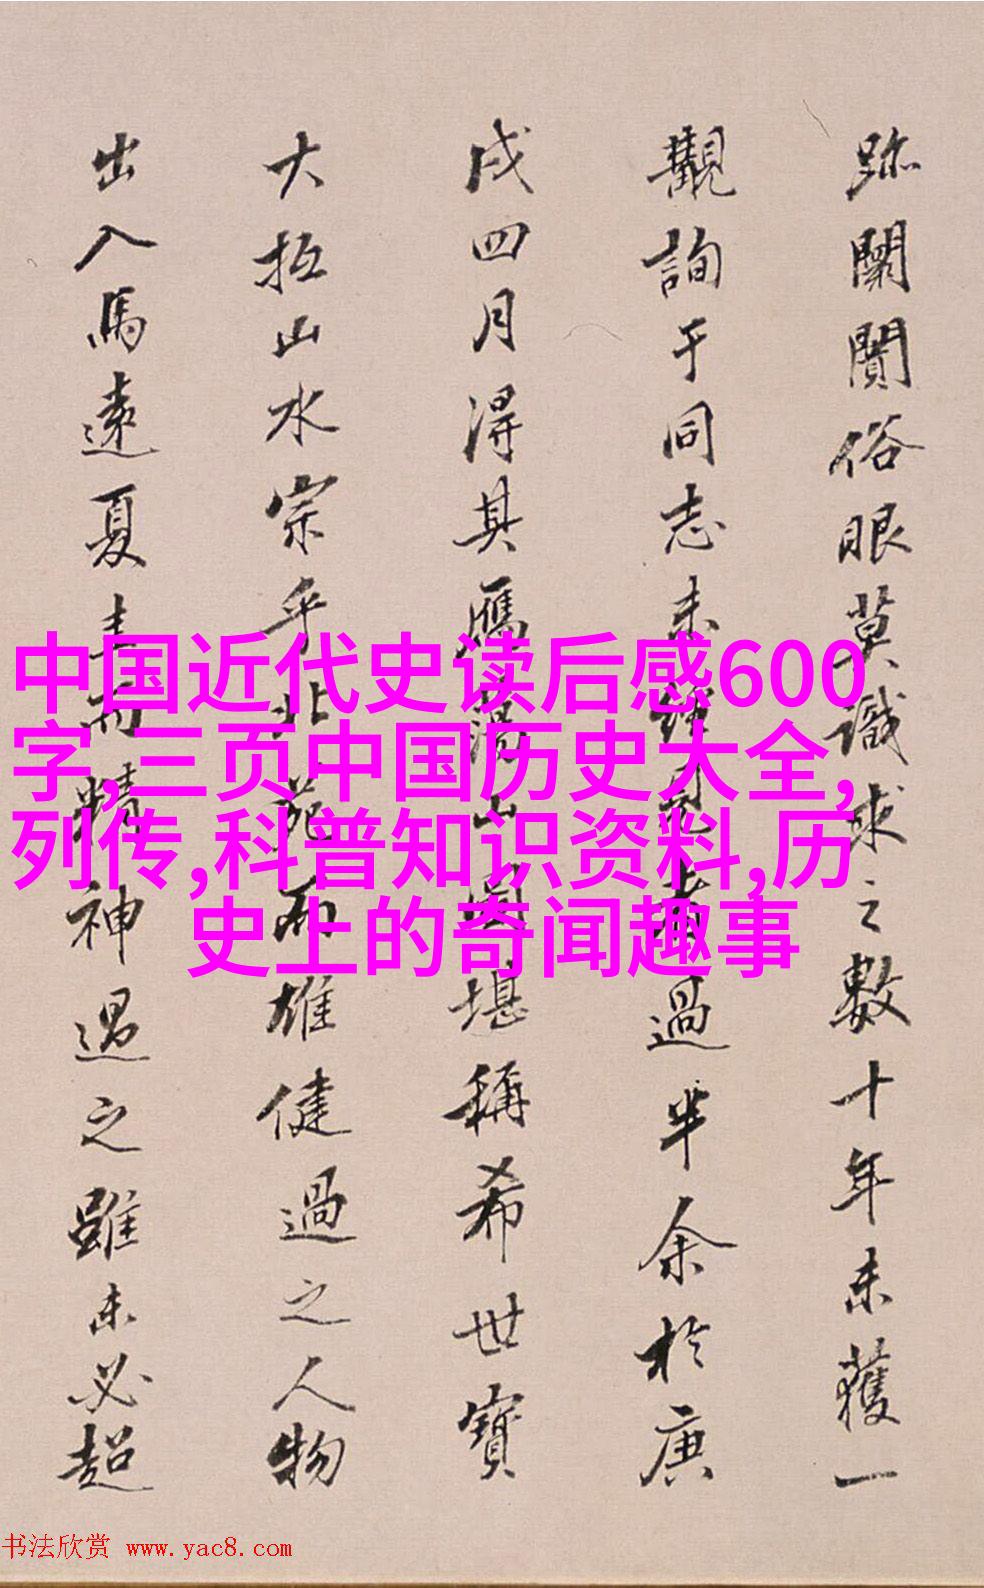 跡闤闠俗眼莫識求之數十年未獲一
觀詢于同志未經見者過半余於庚
戌四月得其鴈蕩山圖堪稱希世寶
大抵山水宗乎北苑而雄健過之人物
出入馬遠夏圭而精神過之雖未必超
中国近代史读后感600
字,三页中国历史大全,
列传,科普知识资料,历
史上的奇闻趣事
书法欣赏 www.yac8.com